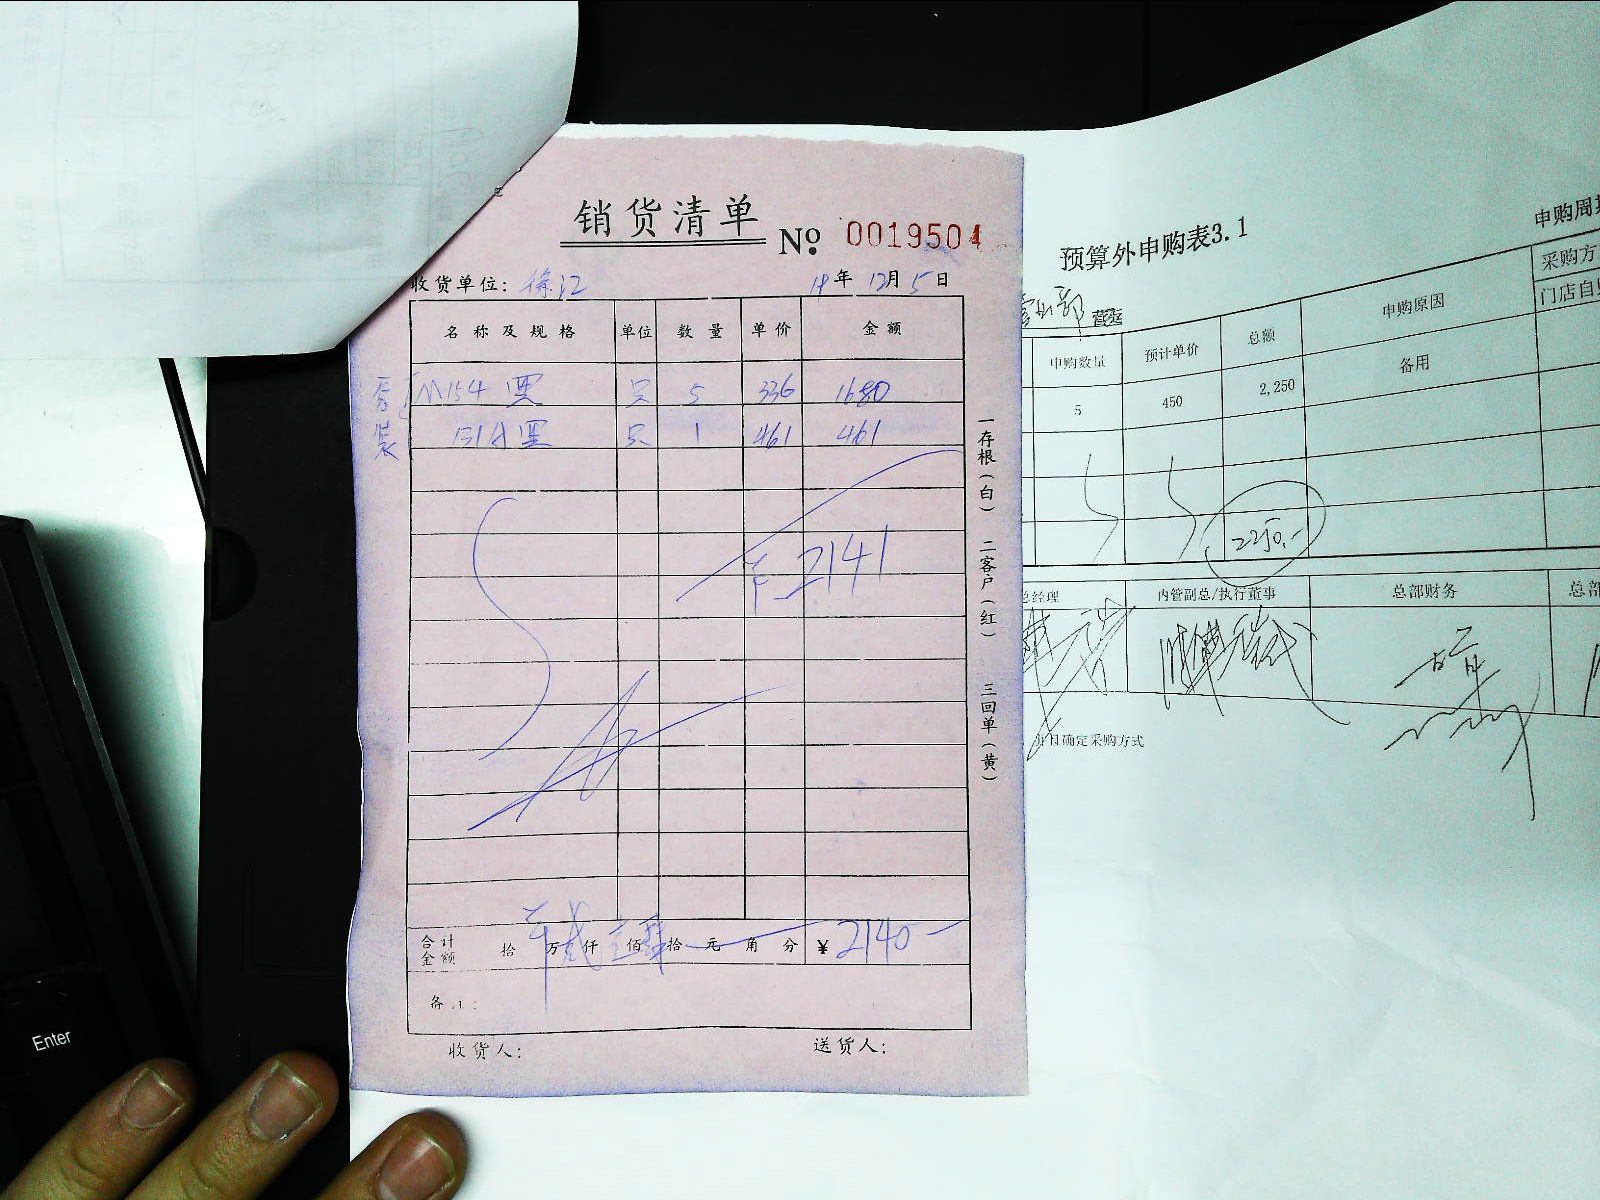 销货清单
No 0019504
收货单位: 徐汇
年 12月 5日
名称及规格 单位 数量 单价 金额
M154 黑 只 5 336 1680
黑 只 1 461 461
装
2141
合计金额 拾 万 仟 佰 拾 元 角 分 ¥ 2140
收货人: 送货人:
一存根(白) 二客户(红) 三回单(黄)
预算外申购表3.1
申购周
采购方
门店自
申购数量 预计单价 总额 申购原因
5 450 2,250 备用
2250.-
总经理 内管副总/执行董事 总部财务 总部
确定采购方式
Enter